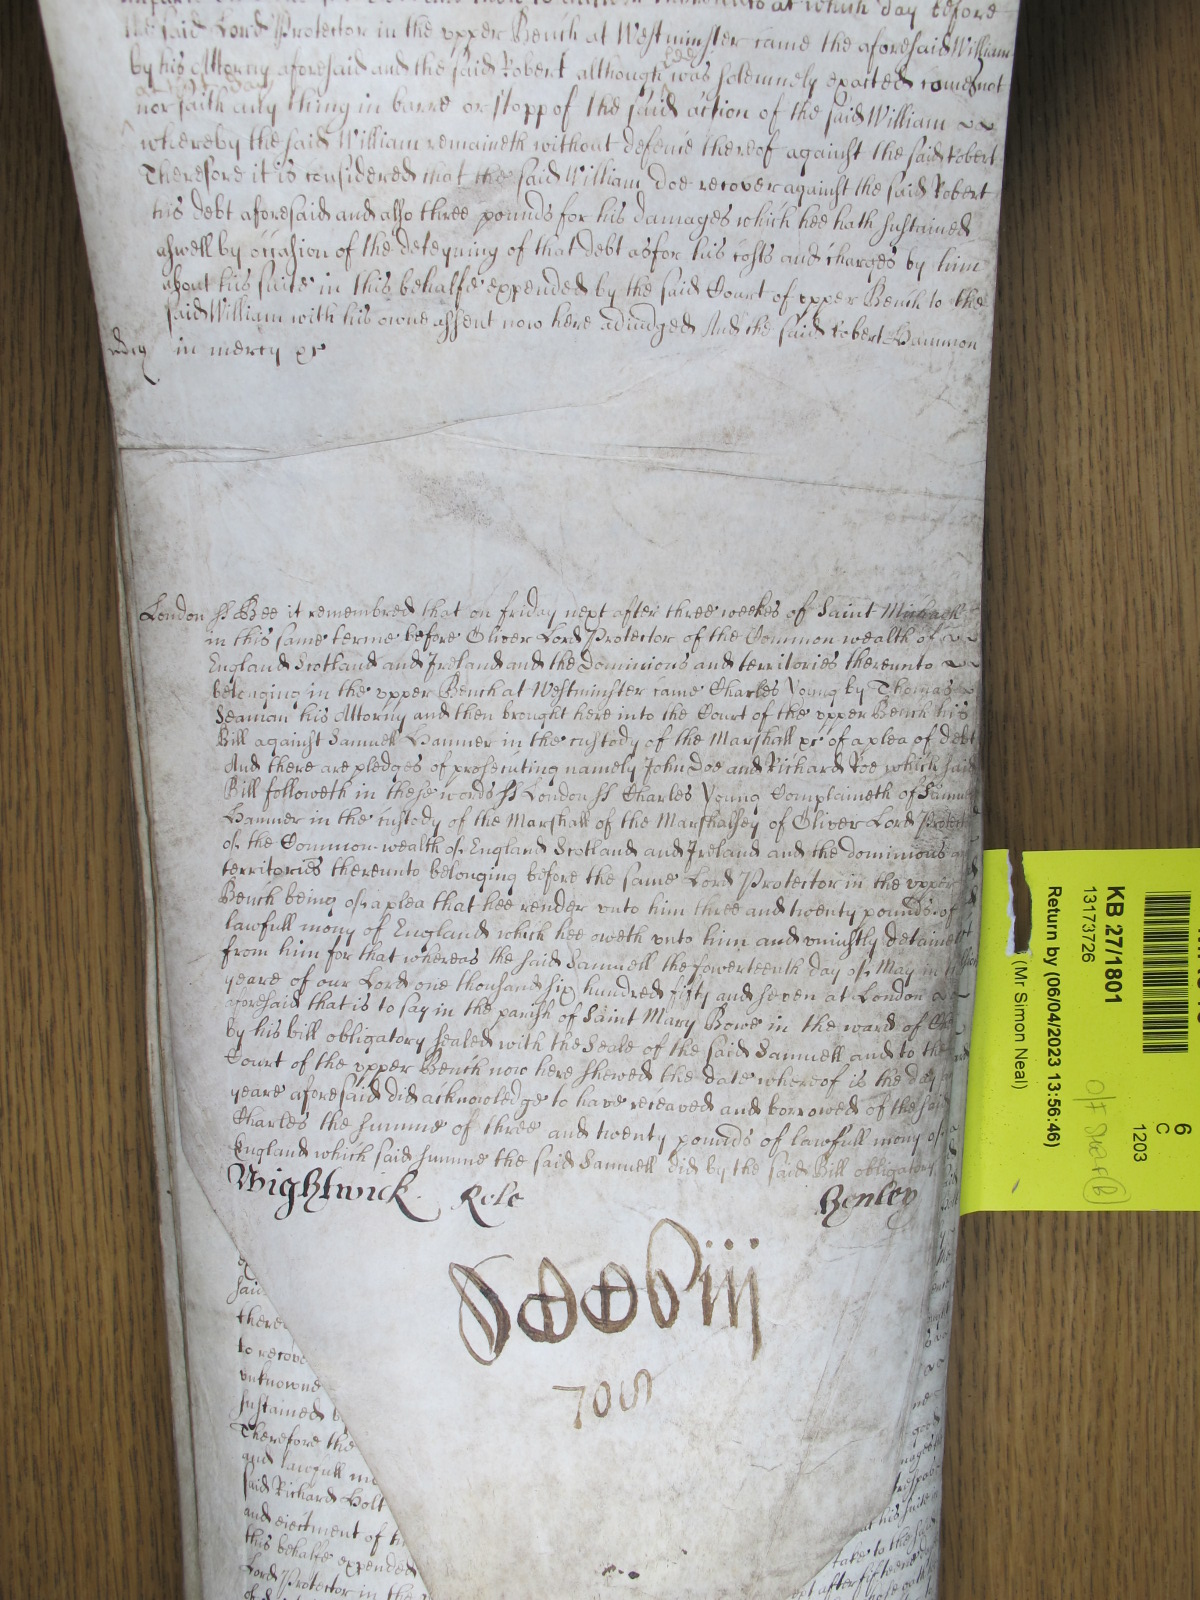 at which day before
the said Lord Protector in the vpper Bench at Westminster came the aforesaid William
by his Attorny aforesaid and the said Robert although was solemnely exacted came not
nor saith any thing in barre or stopp of the said action of the said William
whereby the said William remaineth without defence thereof against the said Robert
Therefore it is considered that the said William doe recover against the said Robert
his debt aforesaid and also three pounds for his damages which hee hath sustained
aswell by occasion of the deteyning of that debt as for his costs and charges by him
about his suite in this behalfe expended by the said Court of vpper Bench to the
said William with his owne assent now here adiudged And the said Robert Hammon
in mercy &c
London ss Bee it remembred that on friday next after three weekes of Saint Michaell
in this same terme before Oliver Lord Protector of the Common wealth of
England Scotland and Ireland and the Dominions and territories thereunto
belonging in the vpper Bench at Westminster came Charles Young by Thomas
Seamon his Attorny and then brought here into the Court of the vpper Bench his
Bill against Samuell Hanmer in the custody of the Marshall &c of a plea of debt
And there are pledges of prosecuting namely John Doe and Richard Roe which said
Bill followeth in these words ss London ss Charles Young Complaineth of Samuell
Hanmer in the custody of the Marshall of the Marshalsey of Oliver Lord Protector
of the Common-wealth of England Scotland and Ireland and the dominions
territories thereunto belonging before the same Lord Protector in the vpper
Bench being of a plea that hee render vnto him three and twenty pounds of
lawfull mony of England which hee oweth vnto him and vniustly detaineth
from him for that whereas the said Samuell the fowerteenth day of May in
yeare of our Lord one thousand six hundred fifty and seven at London
aforesaid that is to say in the parish of Saint Mary Bowe in the ward of
by his bill obligatory sealed with the Seale of the said Samuell and to the
Court of the vpper Bench now here shewed the date whereof is the day
yeare aforesaid did acknowledge to have receaved and borrowed of the said
Charles the summe of three and twenty pounds of lawfull mony of
England which said summe the said Samuell did by the said Bill obligatory
Wightwick Role Henley
708
said
to recover
vnknowne
sustained
Therefore the
and lawfull
said Richard Holt
and eiectment of
this behalfe expended
Lord Protector in the
KB 27/1801
13173726
Return by (06/04/2023 13:56:46)
(Mr Simon Neal)
6
C
1203